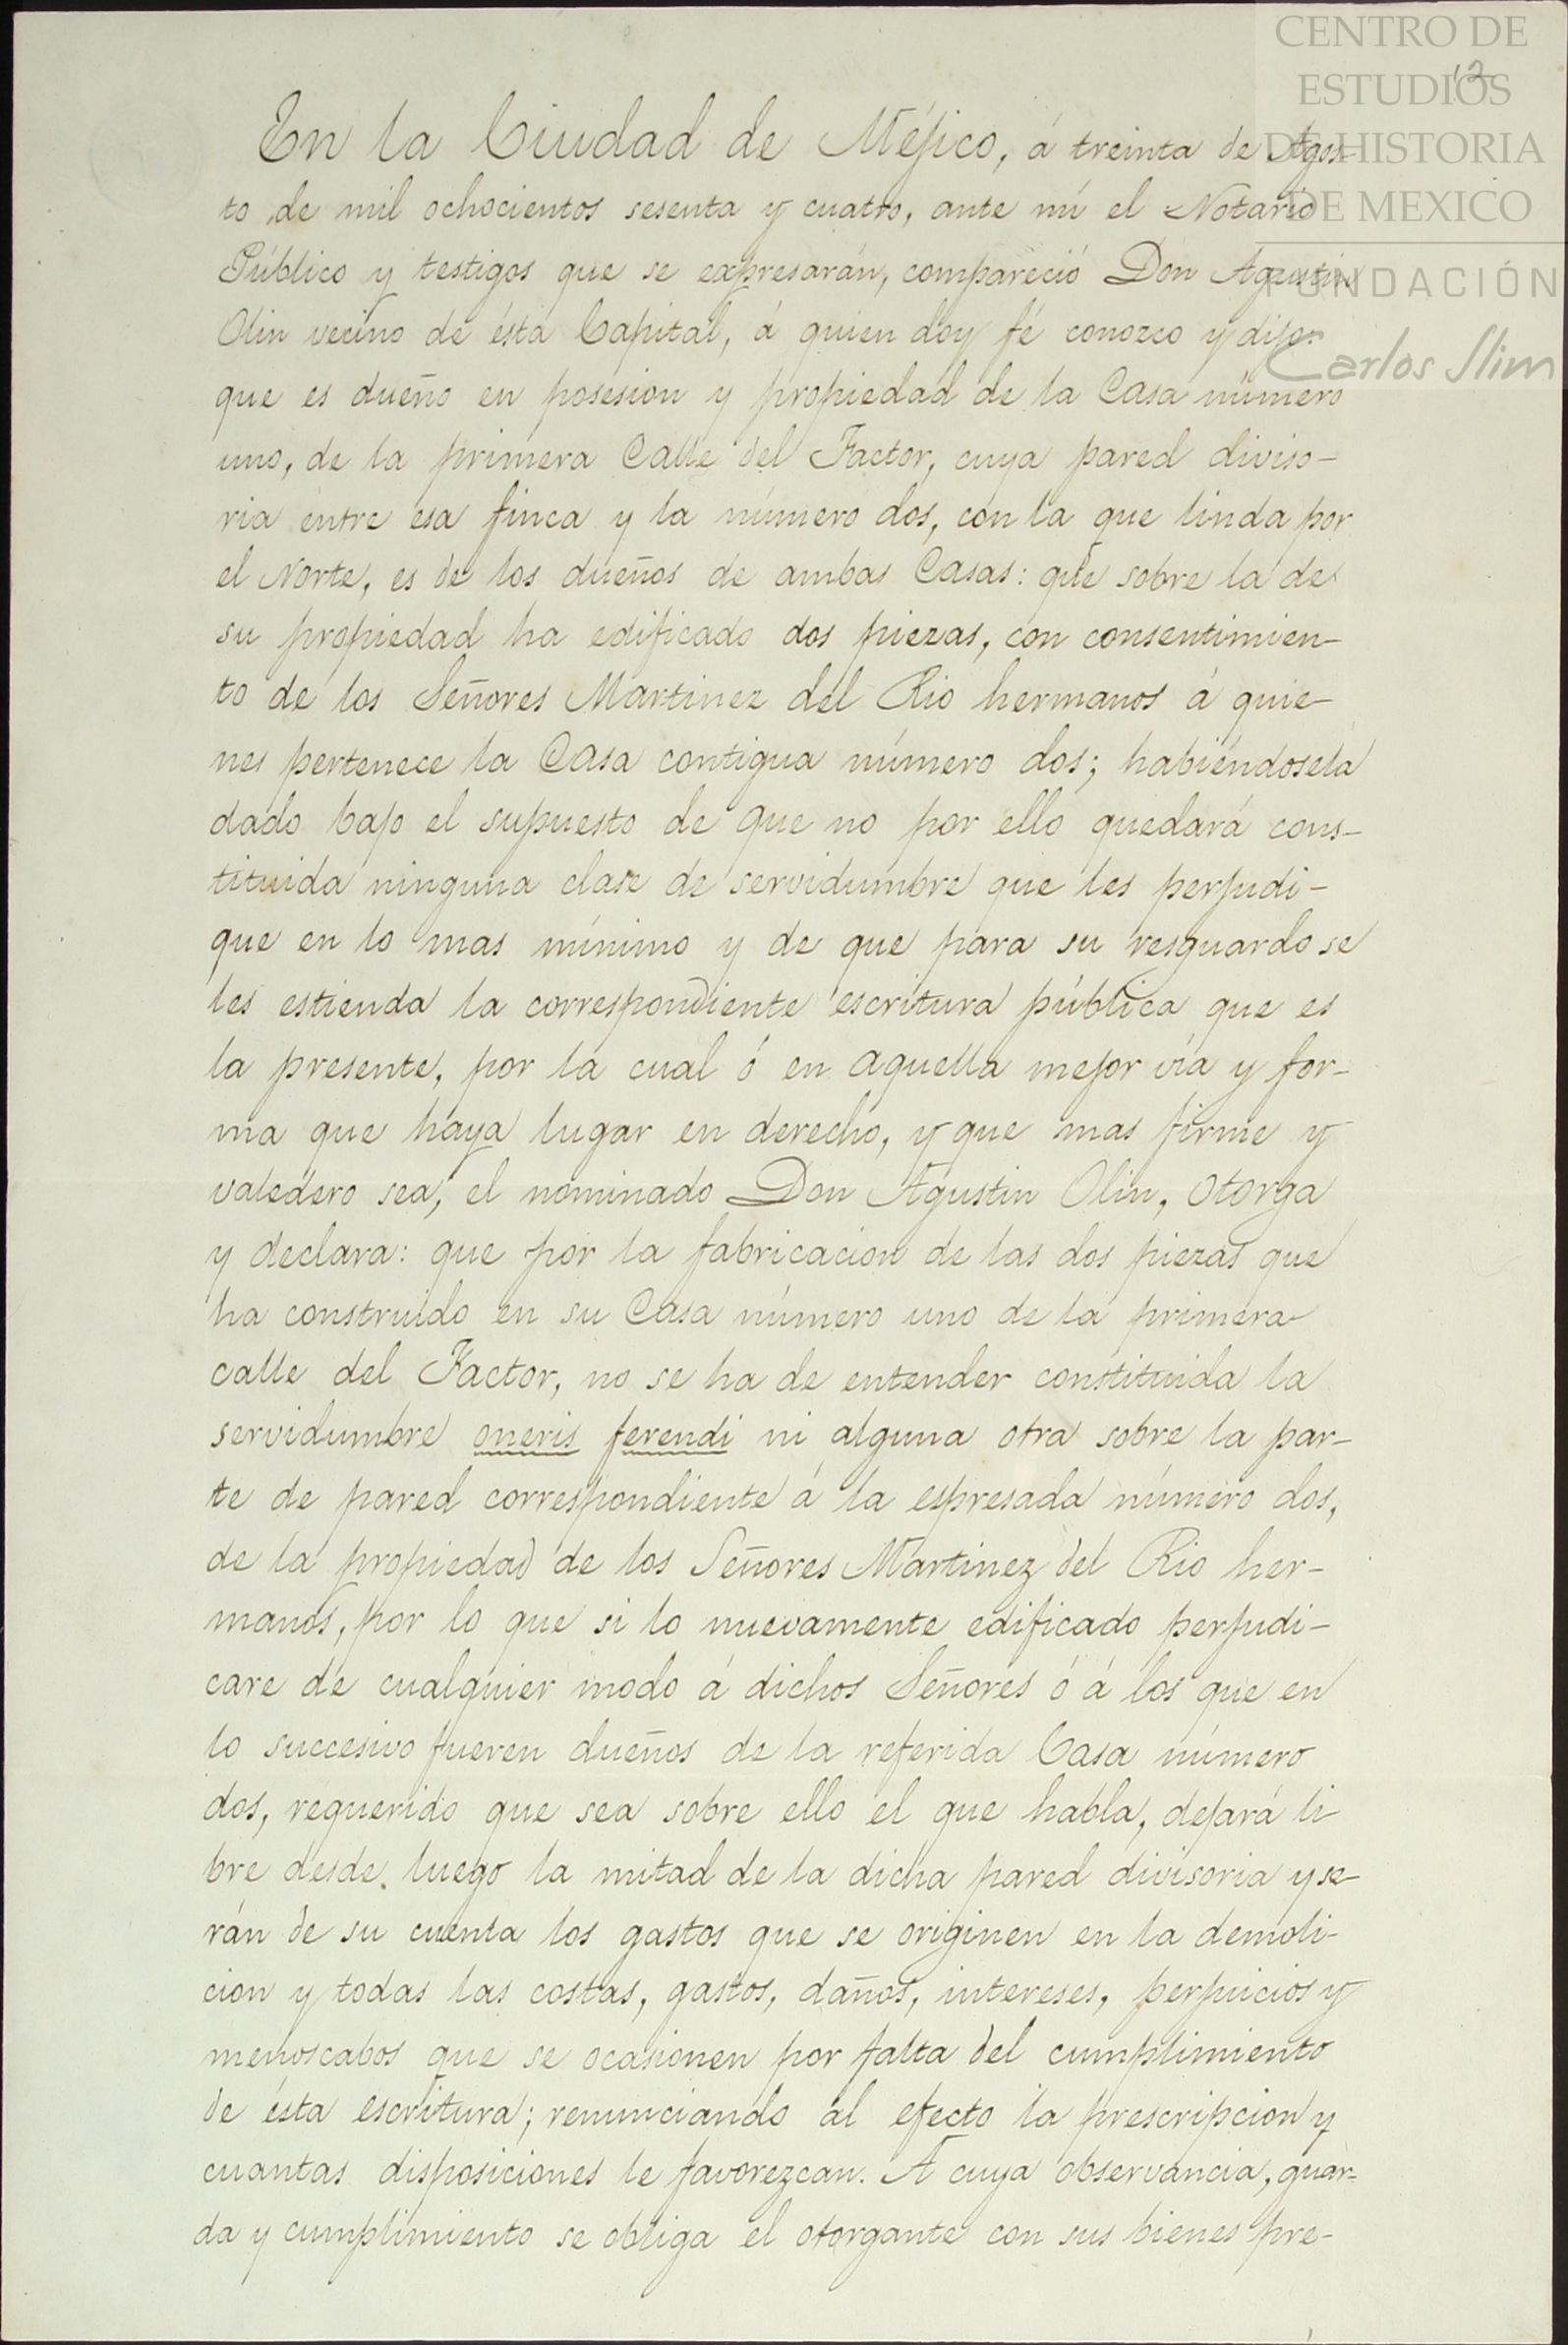 CENTRO DE
ESTUDIOS
DE HISTORIA
DE MEXICO
FUNDACIÓN
Carlos Slim
12
En la Ciudad de Méjico, á treinta de Agos-
to de mil ochocientos sesenta y cuatro, ante mí el Notario
Público y testigos que se expresarán, compareció Don Agustin
Olin vecino de ésta Capital, á quien doy fé conozco y dijo:
que es dueño en posesion y propiedad de la Casa número
uno, de la primera Calle del Factor, cuya pared diviso-
ria entre esa finca y la número dos, con la que linda por
el Norte, es de los dueños de ambas Casas: que sobre la de
su propiedad ha edificado dos piezas, con consentimien-
to de los Señores Martinez del Rio hermanos á quie-
nes pertenece la Casa contigua número dos; habiéndosela
dado bajo el supuesto de que no por ello quedará cons-
tituida ninguna clase de servidumbre que les perjudi-
que en lo mas mínimo y de que para su resguardo se
les estienda la correspondiente escritura pública que es
la presente, por la cual ó en aquella mejor via y for-
ma que haya lugar en derecho, y que mas firme y
valedero sea, el nominado Don Agustin Olin, otorga
y declara: que por la fabricacion de las dos piezas que
ha construido en su Casa número uno de la primera
calle del Factor, no se ha de entender constituida la
servidumbre oneris ferendi ni alguna otra sobre la par-
te de pared correspondiente á la espresada número dos,
de la propiedad de los Señores Martinez del Rio her-
manos, por lo que si lo nuevamente edificado perjudi-
care de cualquier modo á dichos Señores ó á los que en
lo succesivo fueren dueños de la referida Casa número
dos, requerido que sea sobre ello el que habla, dejará li
bre desde luego la mitad de la dicha pared divisoria y se-
rán de su cuenta los gastos que se originen en la demoli-
cion y todas las costas, gastos, daños, intereses, perjuicios y
menoscabos que se ocasionen por falta del cumplimiento
de ésta escritura; renunciando al efecto la prescripcion y
cuantas disposiciones le favorezcan. A cuya observancia, guar-
da y cumplimiento se obliga el otorgante con sus bienes pre-